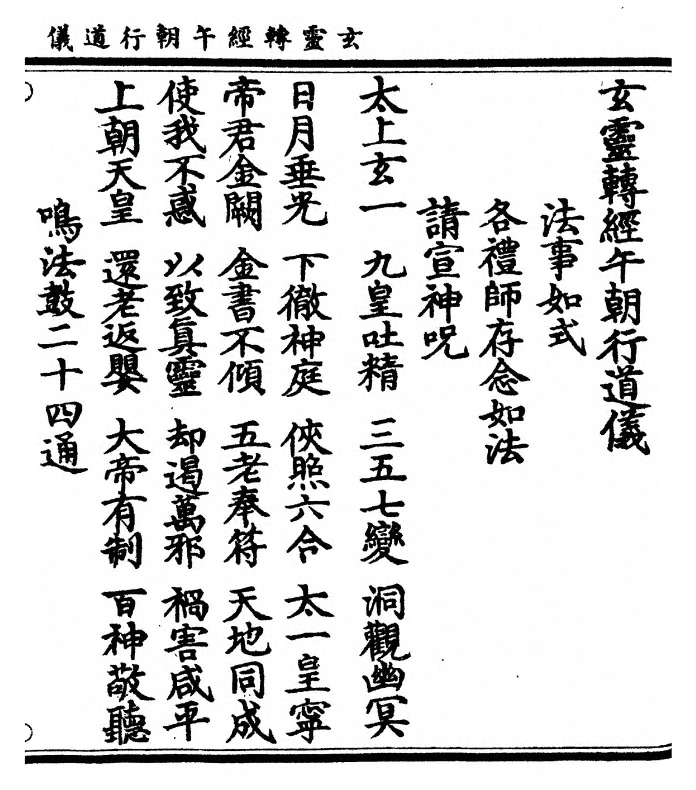 玄靈轉經午朝行道儀
玄靈轉經午朝行道儀
法事如式
各禮師存念如法
請宣神呪
太上玄一　九皇吐精　三五七變　洞觀幽冥
日月垂光　下徹神庭　俠照六合　太一皇寧
帝君金闕　金書不傾　五老奉符　天地同成
使我不惑　以致真靈　却遏萬邪　禍害咸平
上朝天皇　還老返嬰　大帝有制　百神敬聽
鳴法鼓二十四通